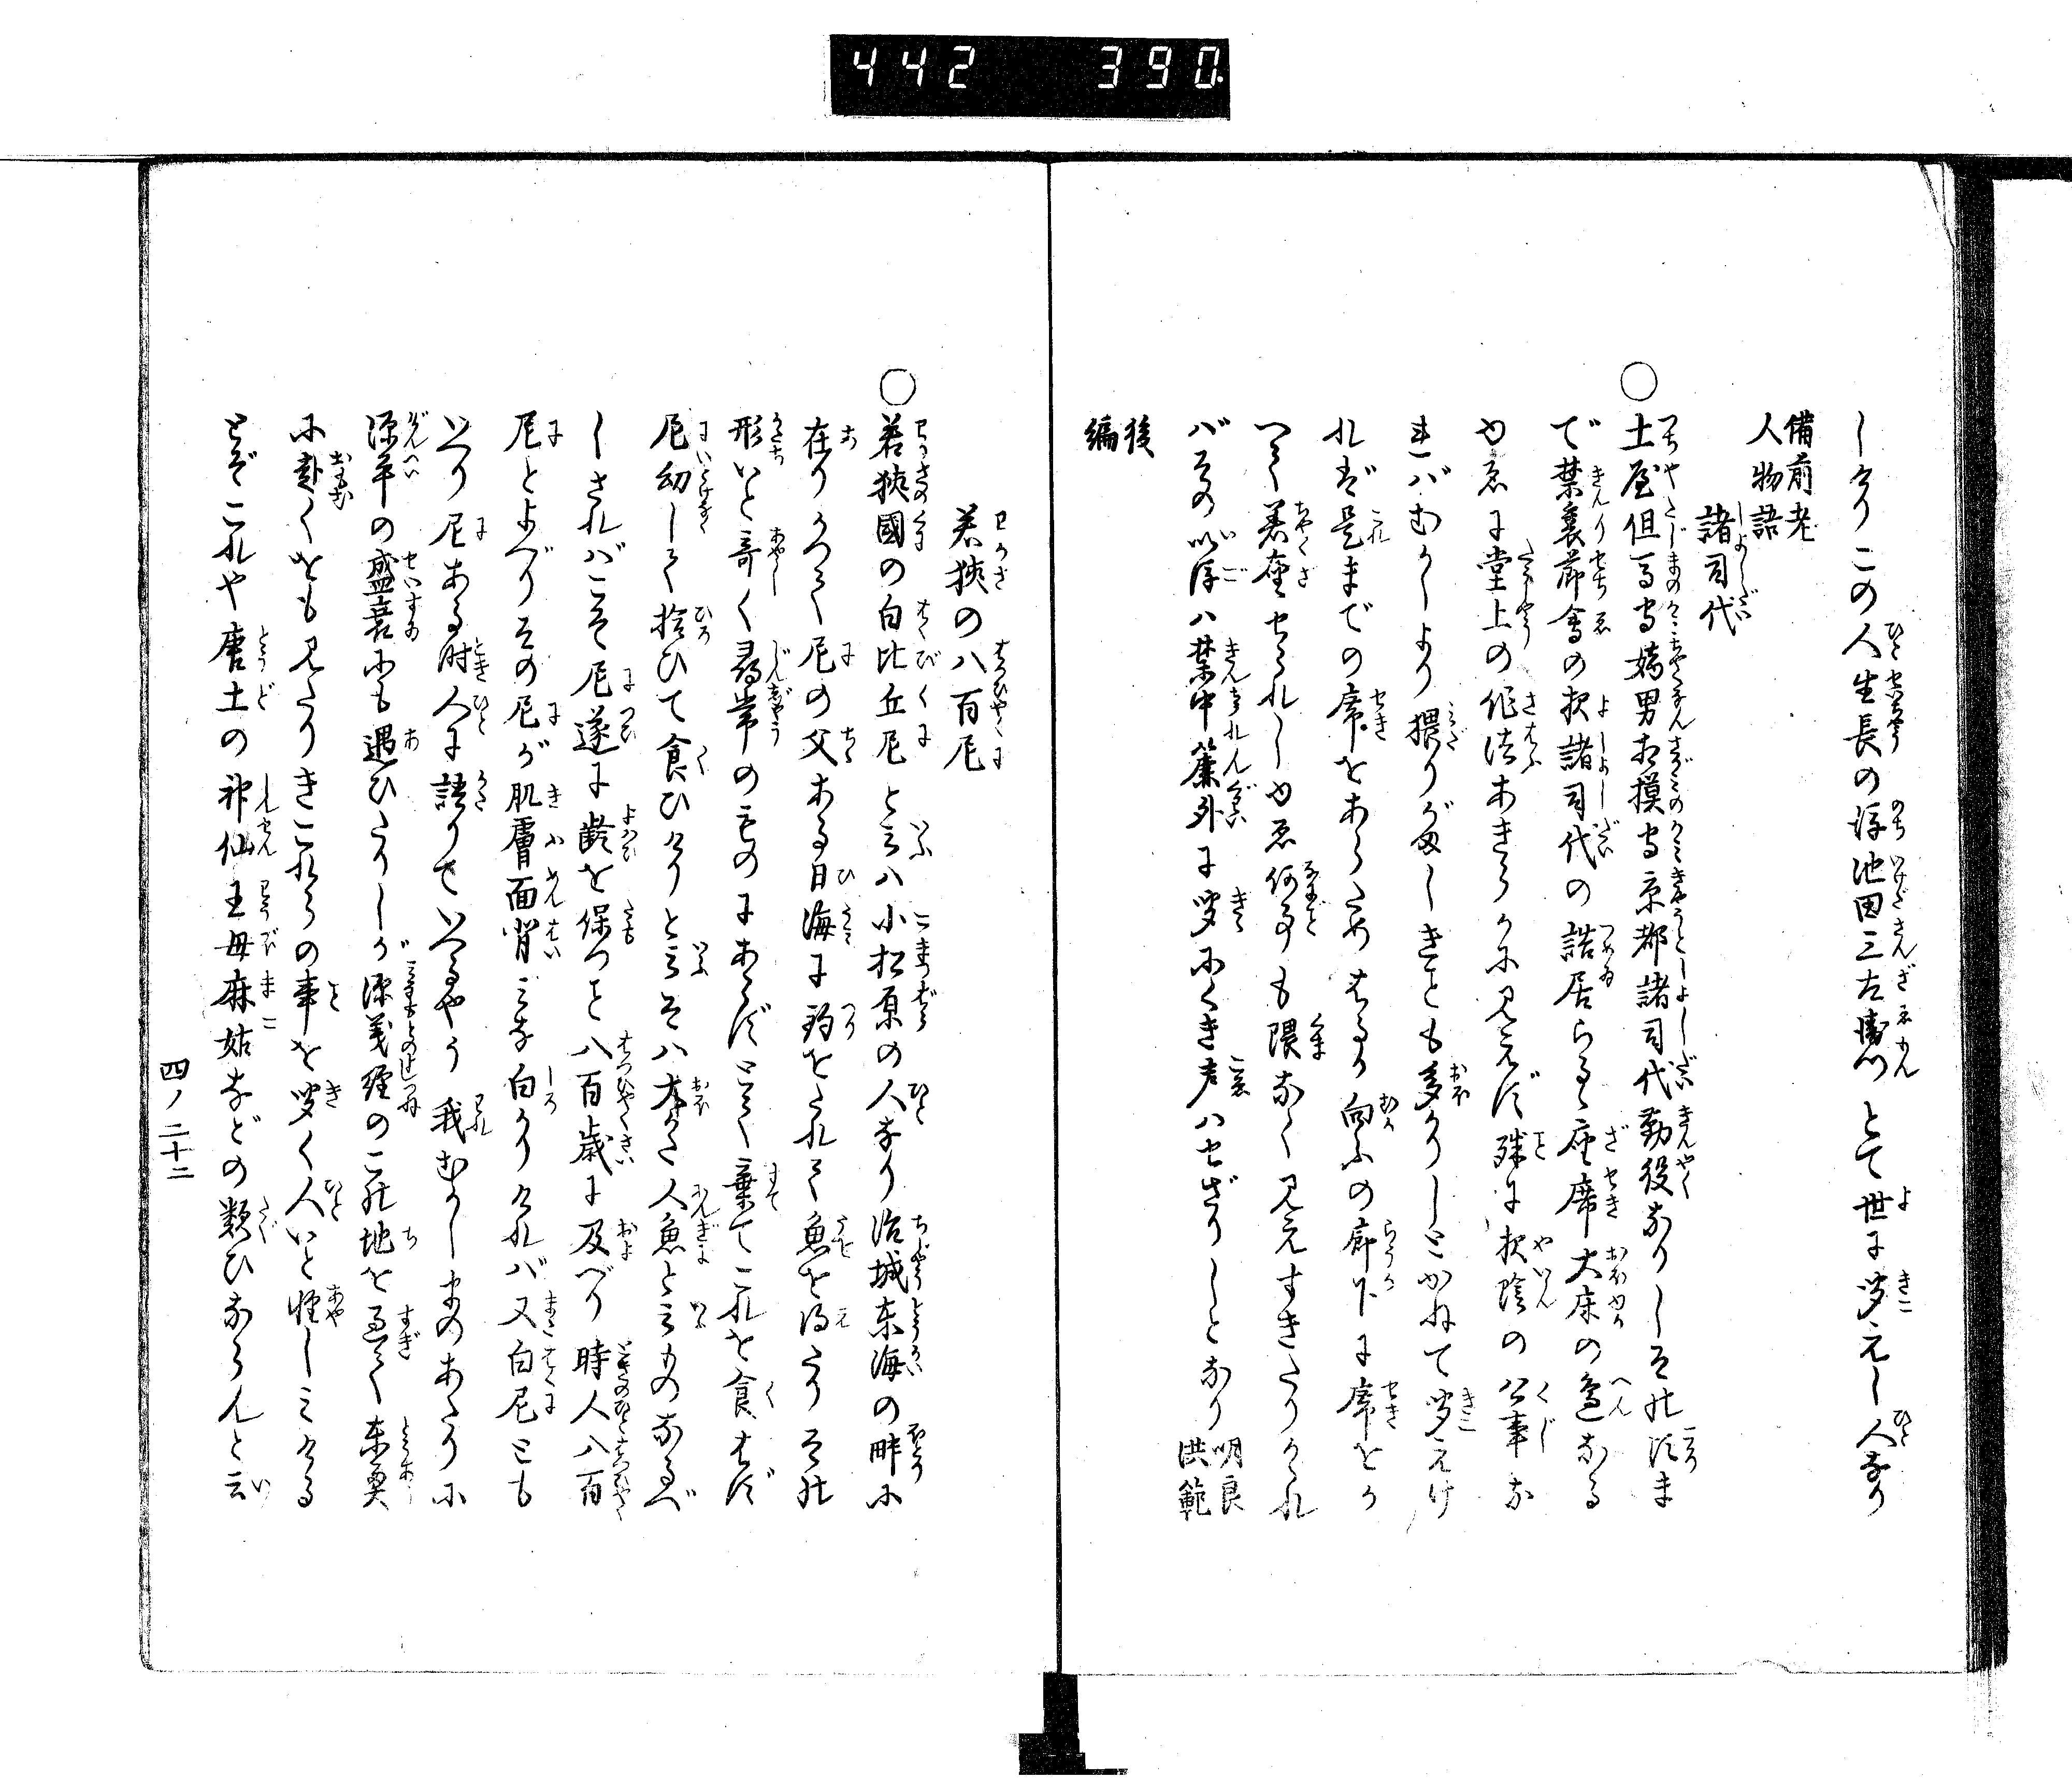 442 390.
しけりこの人生長の後池田三左衛門とて世に聞えし人なり
備前老
人物語
諸司代
○土屋但馬守嫡男相摸守京都諸司代勤役なりしそのころま
で禁裏節会の夜諸司代の詰居らるゝ座席大床の邉なる
ゆゑに堂上の作法あきらかに見えず殊に夜陰の公事な
ればむかしより猥りがましきことも多かりしとかねて聞えけ
れば是までの席をあらためはるか向ふの廊下に席をか
へて着座せられしゆゑ何事も隈なく見えすきたりけれ
バその以後ハ禁中簾外に聞にくき声ハせざりしとなり明良
洪範
後
編
若狭の八百尼
○若狭國の白比丘尼と云ハ小松原の人なり治城东海の畔に
在りかつて尼の父ある日海に釣をたれて魚を得たりその
形いと奇く尋常のものにあらずとて棄てこれを食はず
尼幼して拾ひて食ひけりと云そハ大かた人魚と云ものなるべ
しさればこそ尼遂に齢を保つこと八百歳に及べり時人八百
尼とよべりその尼が肌膚面背ミな白かりけれバ又白尼とも
いへり尼ある時人に語りていへるやう我むかしまのあたりに
源平の盛衰にも遇ひたりしが源義經のこの地を過て东奥
に赴くをも見たりきこれらの事を聞く人いと怪しミける
とぞこれや唐土の神仙王母麻姑などの類ひならんと云
四ノ二十二